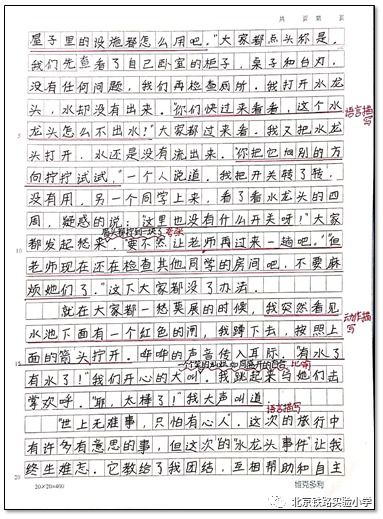 共 页 第 页
屋子里的设施都怎么用吧。"大家都点头称是。
我们先查看了自己卧室的柜子，桌子和台灯，
没有任何问题，我们再检查厕所。我打开水龙
头，水却没有出来。"你们快过来看看，这个水
语言描写
龙头怎么不出水！"大家都过来看。我又把水龙
头打开，水还是没有流出来。"你把它向别的方
向拧拧试试。"一个人说道，我把开关转了转，
没有用，另一个同学上来，看了看水龙头的四
周，疑惑的说："这里也没有什么开关呀！"大家
眉头都拧到一块了 夸张
都发起愁来，"要不然让老师再过来一趟吧。""但
老师现在还在检查其他同学的房间吧，不要麻
烦她们了。"这下大家都没了办法。
就在大家都一愁莫展的时候，我突然看见
动作描写
水池下面有一个红色的闸，我蹲下去，按照上
面的箭头拧开。哗哗的声音传入耳际。"有水了
比喻
有水了！"我们开心的大叫。我就起来与她们击
掌欢呼。"耶，太棒了！"我大声叫道。
语言描写
"世上无难事，只怕有心人"。这次的旅行中
有许多有意思的事，但这次的"水龙头事件"让我
终生难忘。它教给了我团结，互相帮助和自主
5
10
15
20
20×20=400
维克多利
北京铁路实验小学